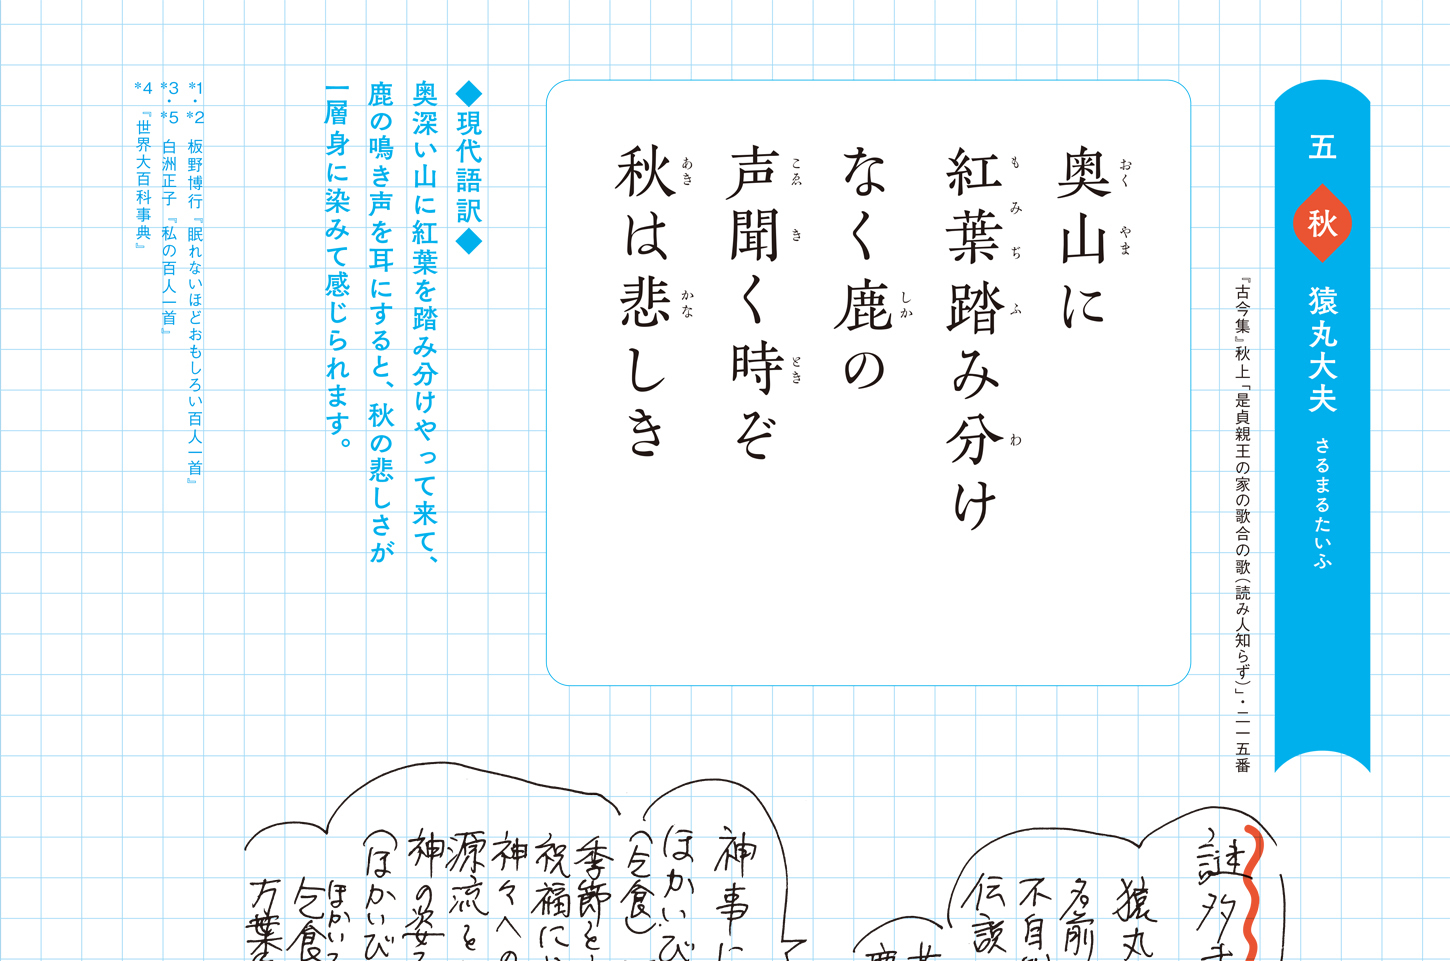 五 秋 猿丸大夫 さるまるたいふ
『古今集』秋上「是貞親王の家の歌合の歌（読み人知らず）」・二一五番
奥山に
おくやま
紅葉踏み分け
もみぢ ふ わ
なく鹿の
しか
声聞く時ぞ
こゑ き とき
秋は悲しき
あき かな
◆現代語訳◆
奥深い山に紅葉を踏み分けやって来て、
鹿の鳴き声を耳にすると、秋の悲しさが
一層身に染みて感じられます。
*1・*2 板野博行『眠れないほどおもしろい百人一首』
*3・*5 白洲正子『私の百人一首』
*4 『世界大百科事典』
謎多き
猿丸
名前
不自
伝説
神事に
ほかいび
（乞食）
季節と
祝福に
神々への
源流を
神の姿
（ほかいび
ほかい
乞食